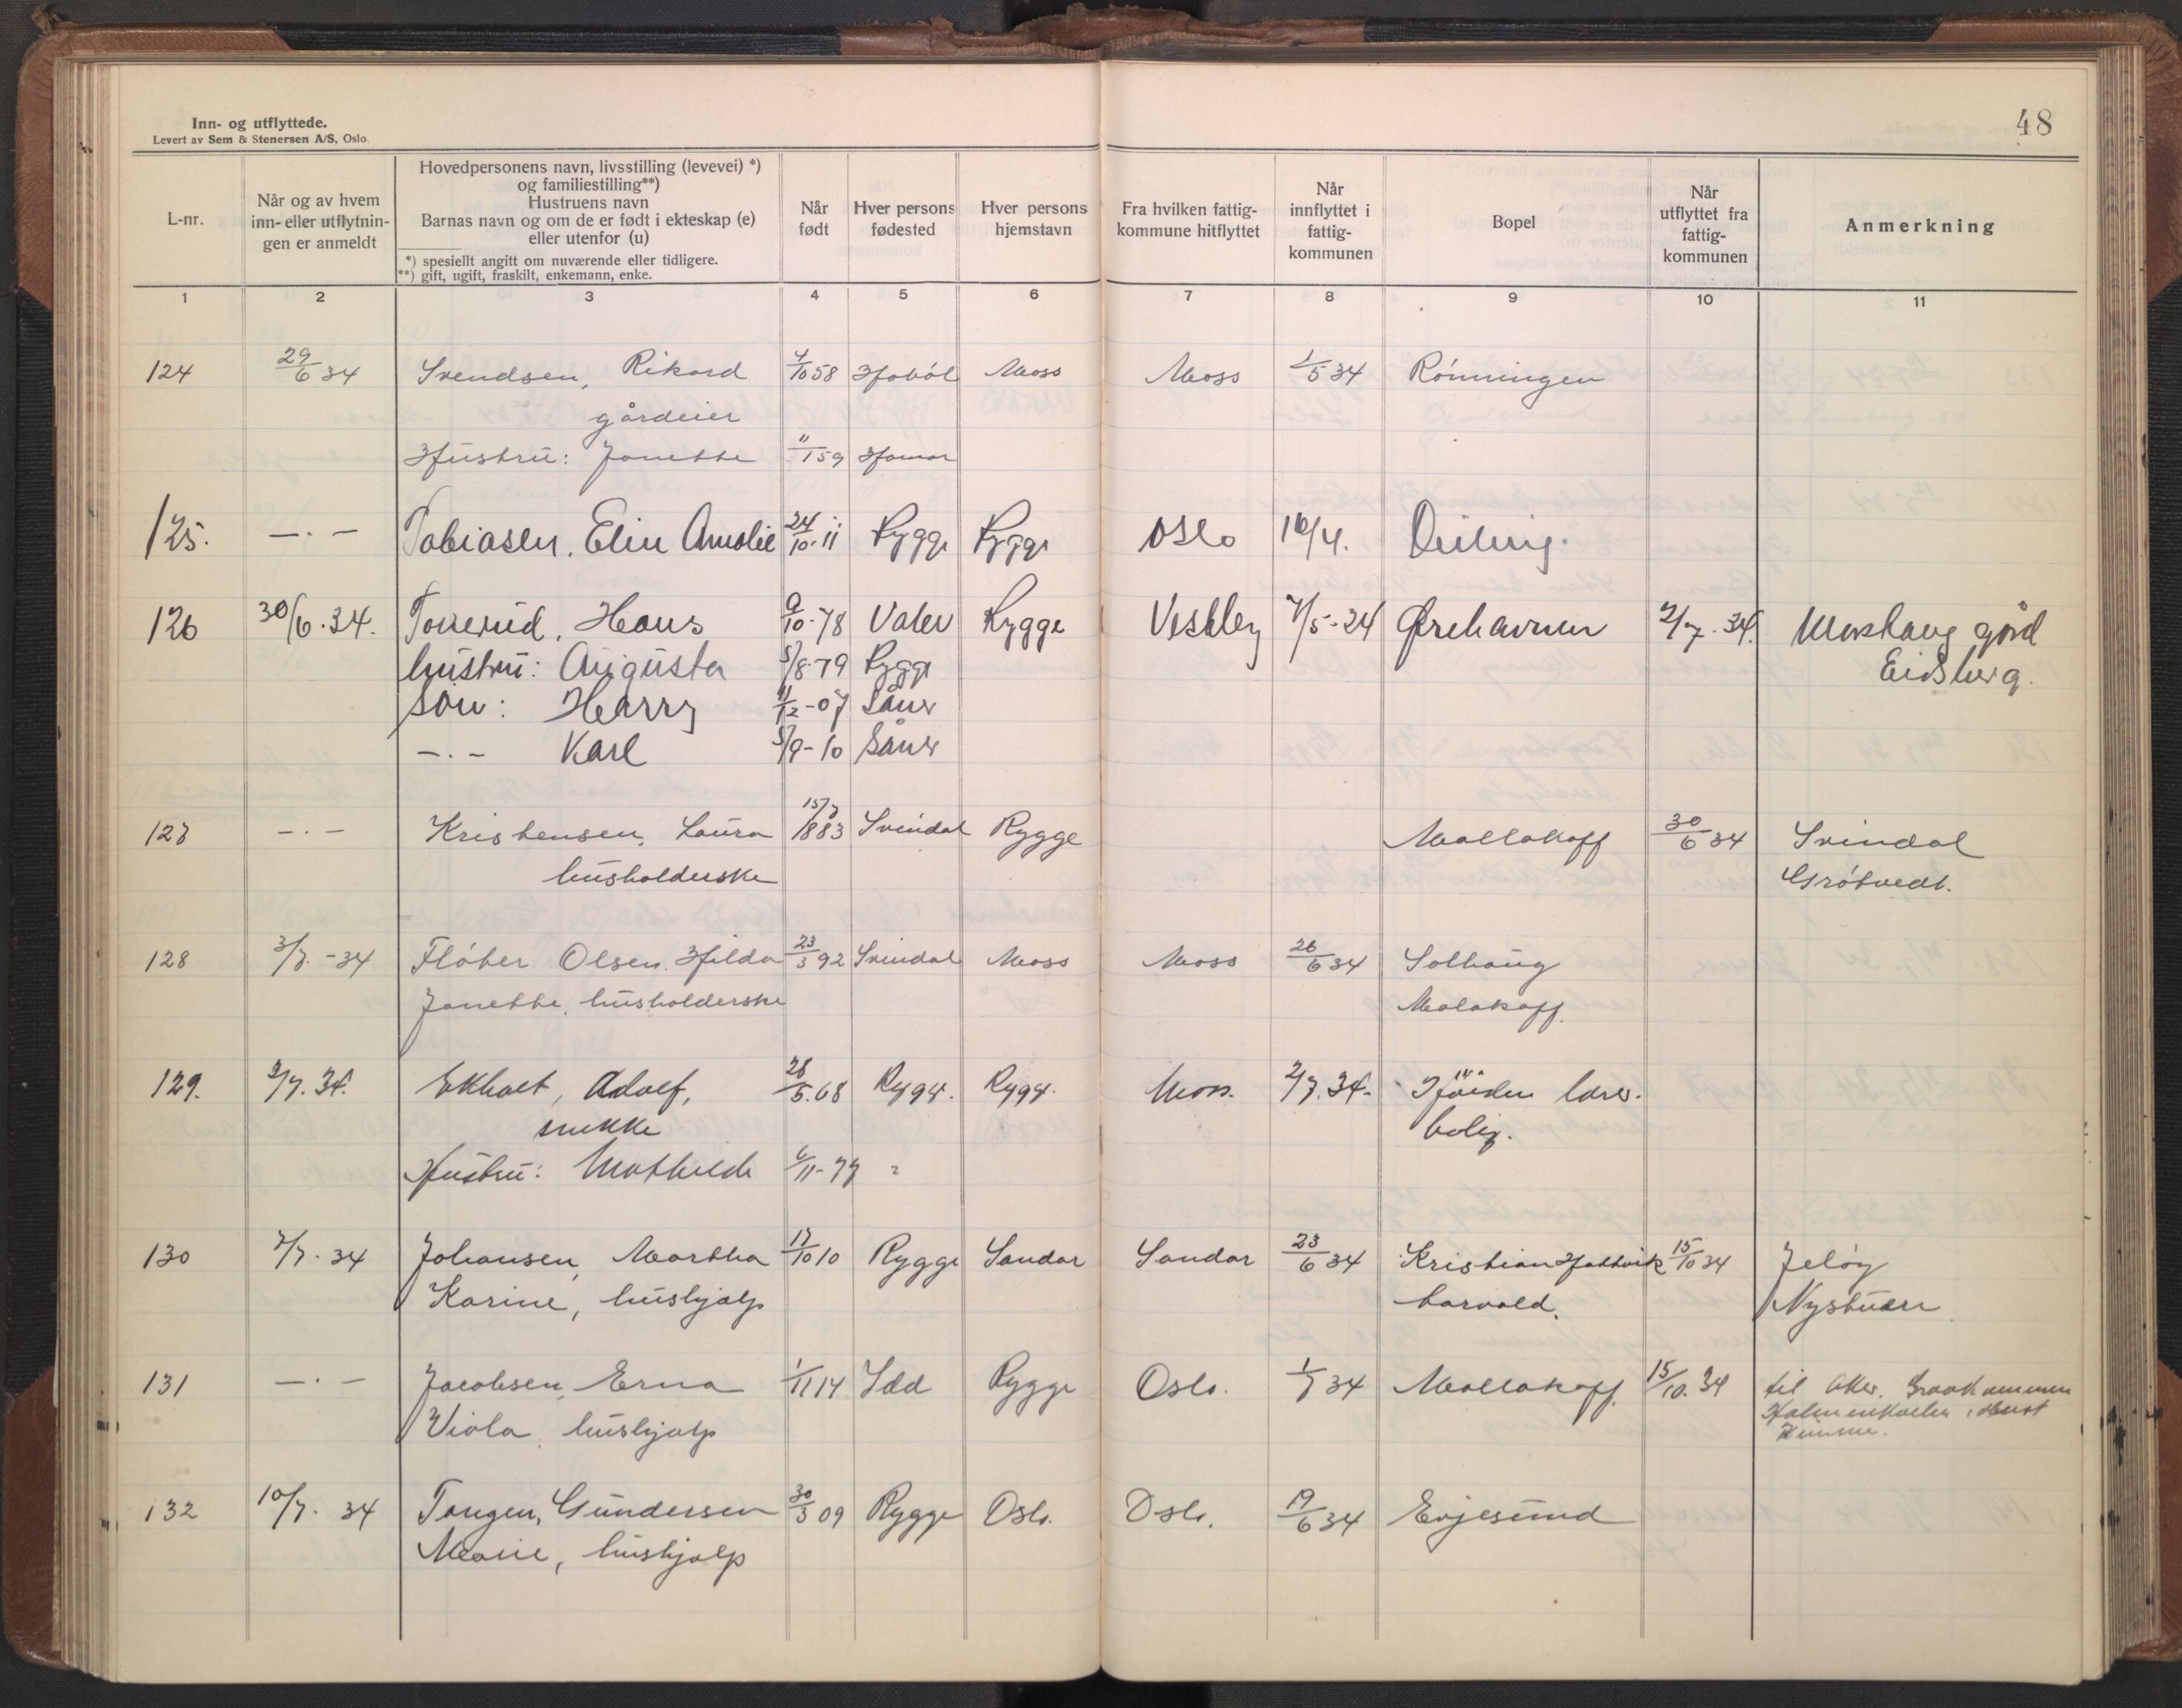 Inn- og utflyttede.
Levert av Sem & Stenersen A/S, Oslo.
48
L-nr.
Når og av hvem
inn- eller utflytnin-
gen er anmeldt
Hovedpersonens navn, livsstilling (levevei) *)
og familiestilling**)
Hustruens navn
Barnas navn og om de er født i ekteskap (e)
eller utenfor (u)
*) spesiellt angitt om nuværende eller tidligere.
**) gift, ugift, fraskilt, enkemann, enke.
Når
født
Hver persons
fødested
Hver persons
hjemstavn
Fra hvilken fattig-
kommune hitflyttet
Når
innflyttet i
fattig-
kommunen
Bopel
Når
utflyttet fra
fattig-
kommunen
Anmerkning
1 2 3 4 5 6 7 8 9 10 11
124 29/6 34 Svendsen, Rikard 4/10 58 Hobøl Moss Moss 1/5 34 Rønningen
gårdeier
Hustru: Janette 11/1 59 Hamar
125. —·— Tobiasen, Elin Amalie 24/10-11 Rygge Rygge Oslo 16/4.
126 30/6.34. Hans 9/10-78 Våler Rygge Vestby 7/5-34 Ørehavnen 2/7.34. gård
hustru: Augusta 5/8-79 Rygge Eidsberg.
Søn: Harry 11/12-07 Såner
—·— Karl 5/9-10 Såner
127 —·— Kristensen, Laura 15/7 1883 Svindal Rygge Mallakoff 30/6 34 Svindal
husholderske Grøtvedt.
128 3/7.-34 Fløter Olsen, Hilda 23/3 92 Svindal Moss Moss 26/6 34 Solhaug
Janette, husholderske Malakoff.
129. 3/7.34. Ekholt, Adolf, 28/5.68 Rygge. Rygge. Moss. 2/7.34.
bolig.
Hustru: Mathilde 6/11-77 "
130 7/7.34 Johansen, Martha 17/10 10 Rygge Sandar Sandar 23/6 34 Kristian Hattvik 15/10 34 Jeløy
Karine, hushjælp Larvold. Nystuen
131 —·— Jacobsen, Erna 1/11 14 Idd Rygge Oslo. 1/7 34 Mallakoff. 15/10.34 til Aker.
Viola, hushjælp
132 10/7. 34 Tangen, Gundersen 30/3 09 Rygge Oslo. Oslo. 19/6 34 Evjesund
Marie, hushjælp